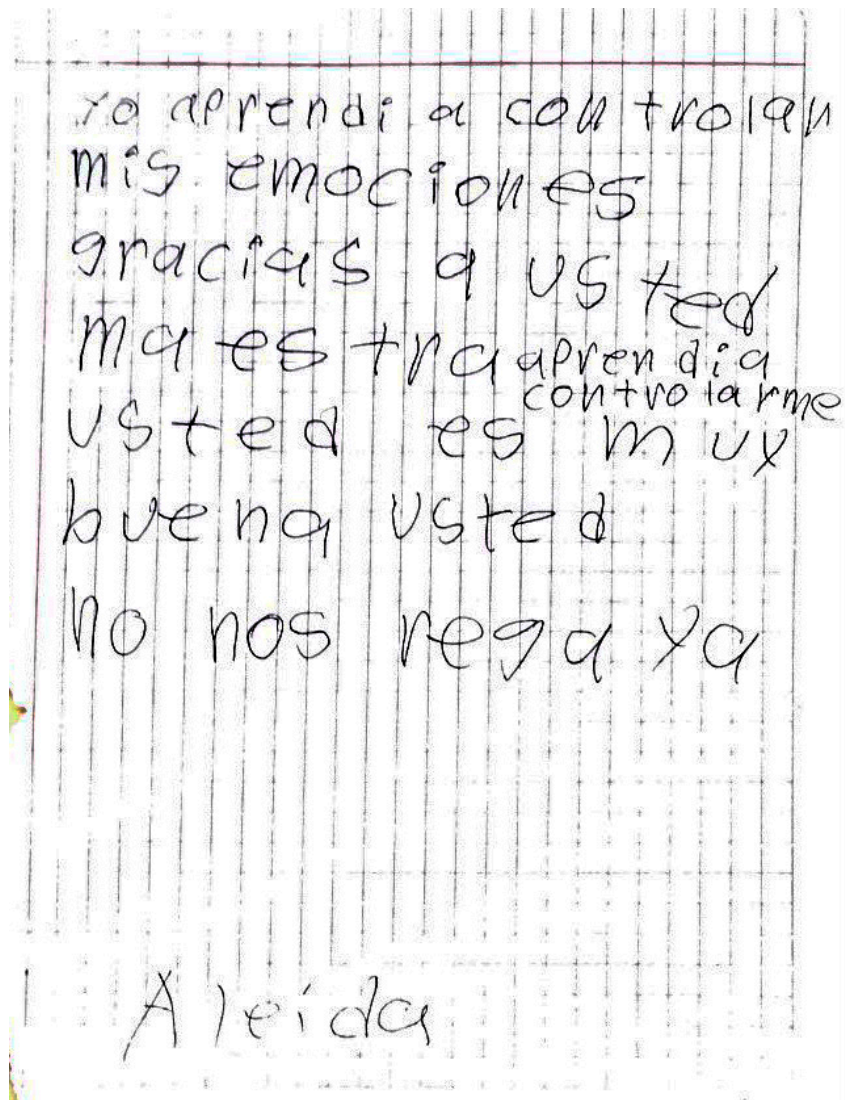 Yo aprendi a controlar
mis emociones
gracias a usted
maestra aprendi a
controlarme
usted es muy
buena usted
no nos rega ya
Aleida